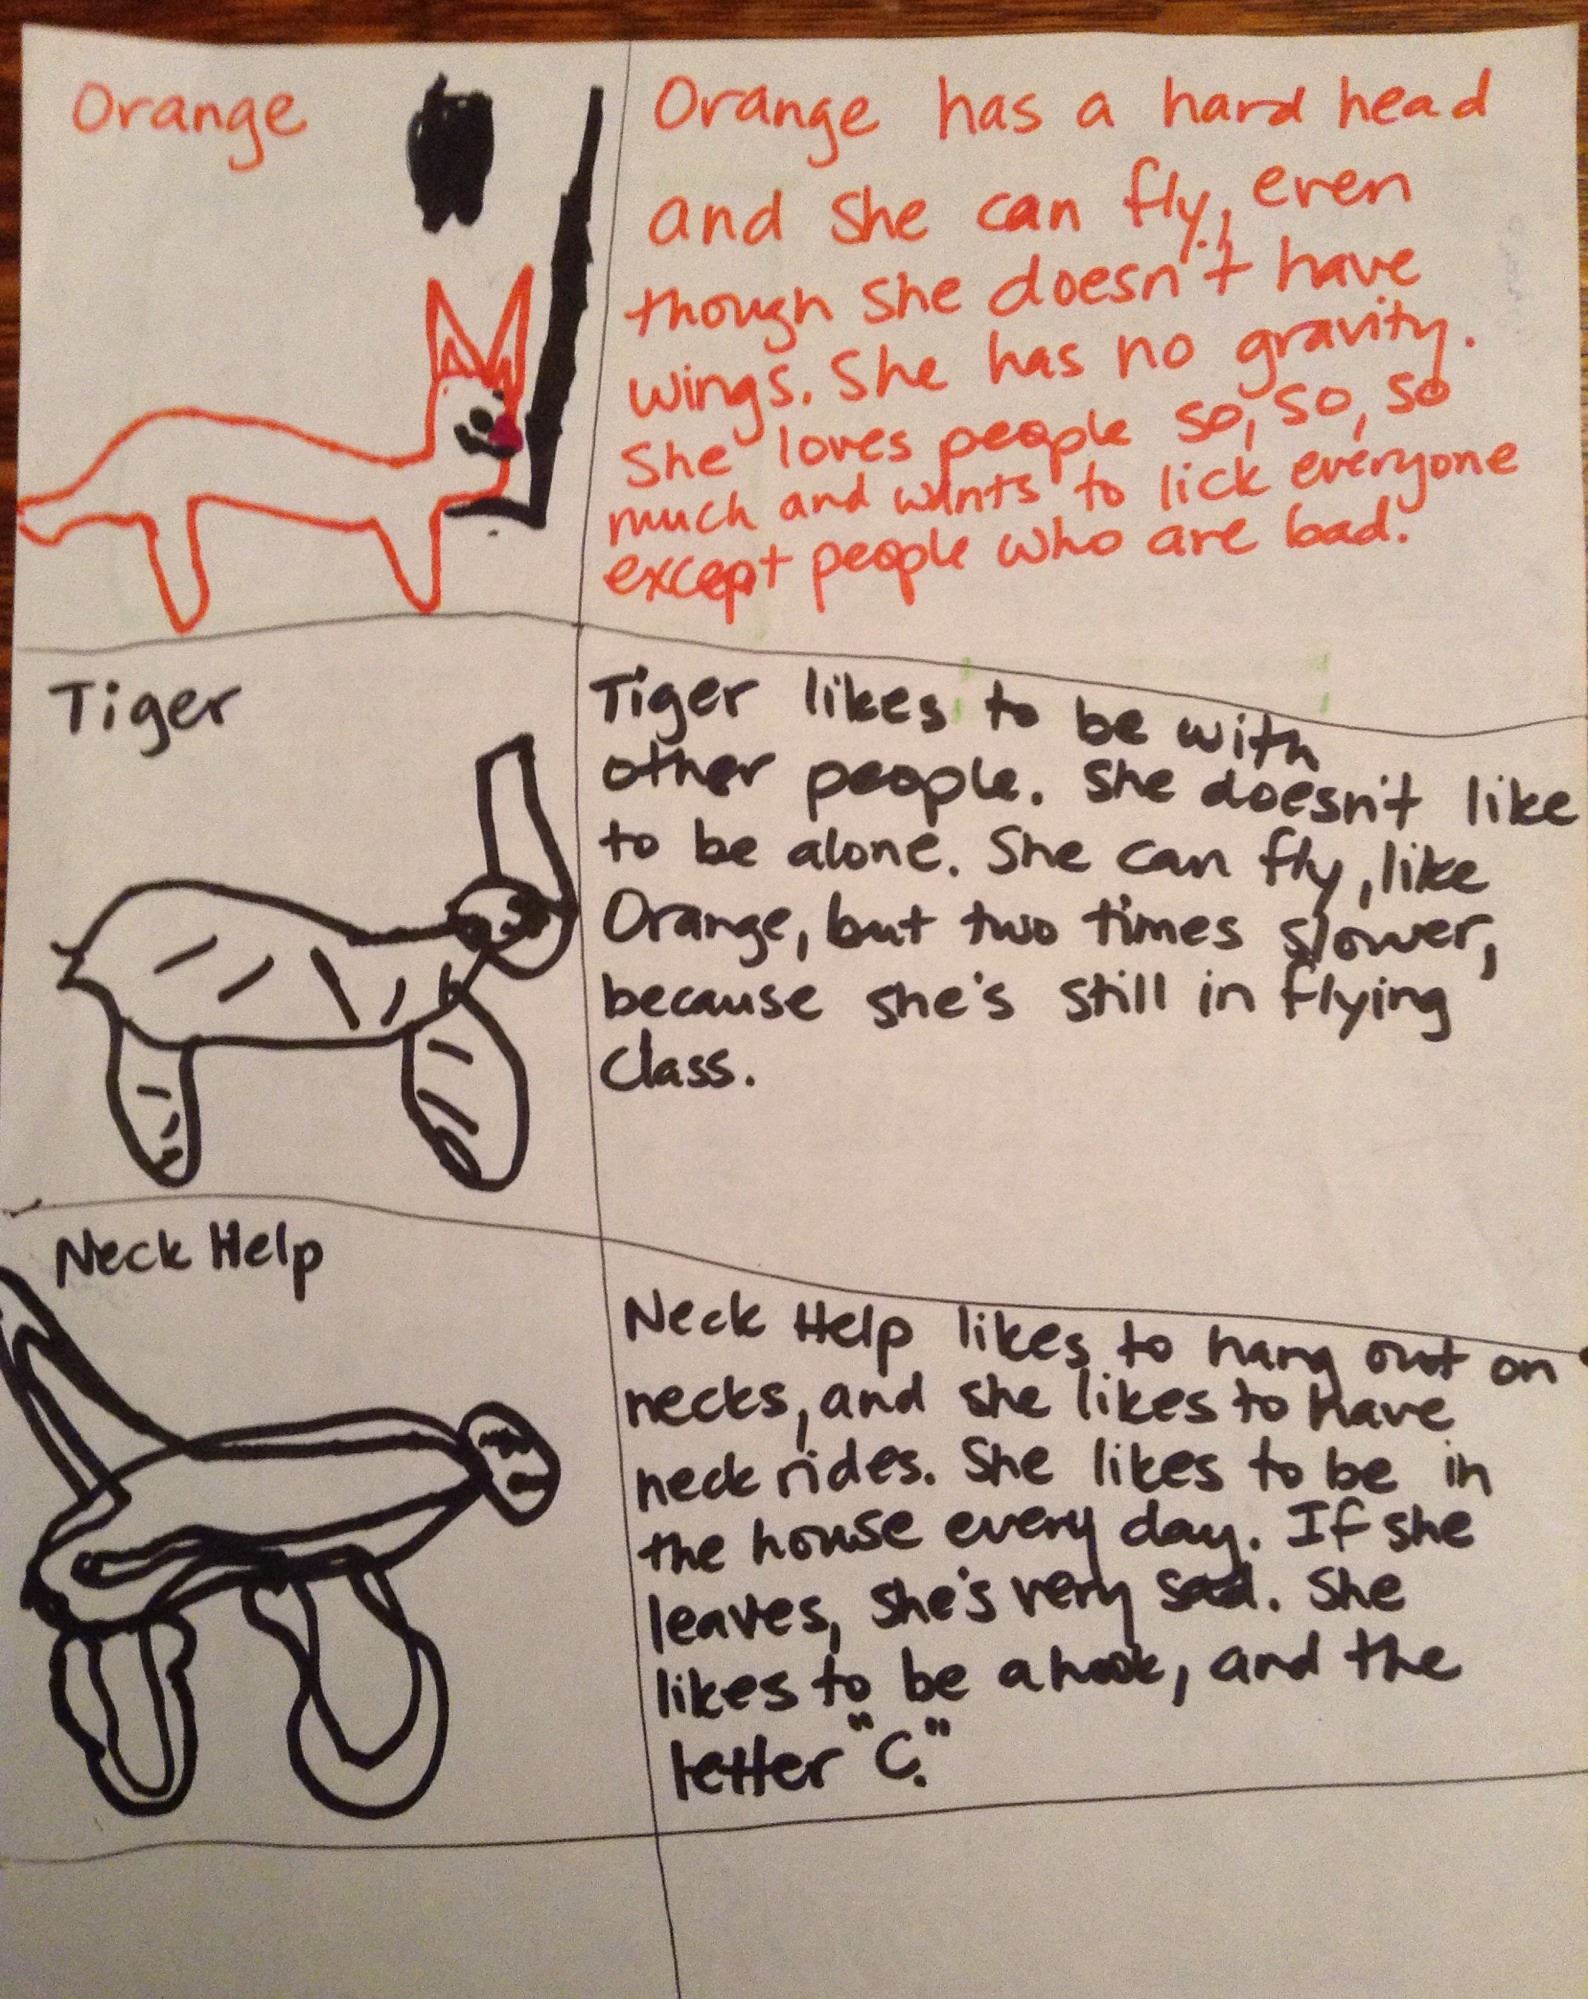 Orange
Orange has a hard head
and she can fly, even
though she doesn't have
wings. She has no gravity.
She loves people so, so, so
much and wants to lick everyone
except people who are bad.
Tiger
Tiger likes to be with
other people. She doesn't like
to be alone. She can fly, like
Orange, but two times slower,
because she's still in flying
class.
Neck Help
Neck Help likes to hang out on
necks, and she likes to have
neck rides. She likes to be in
the house every day. If she
leaves, she's very sad. She
likes to be a hook, and the
letter "C."